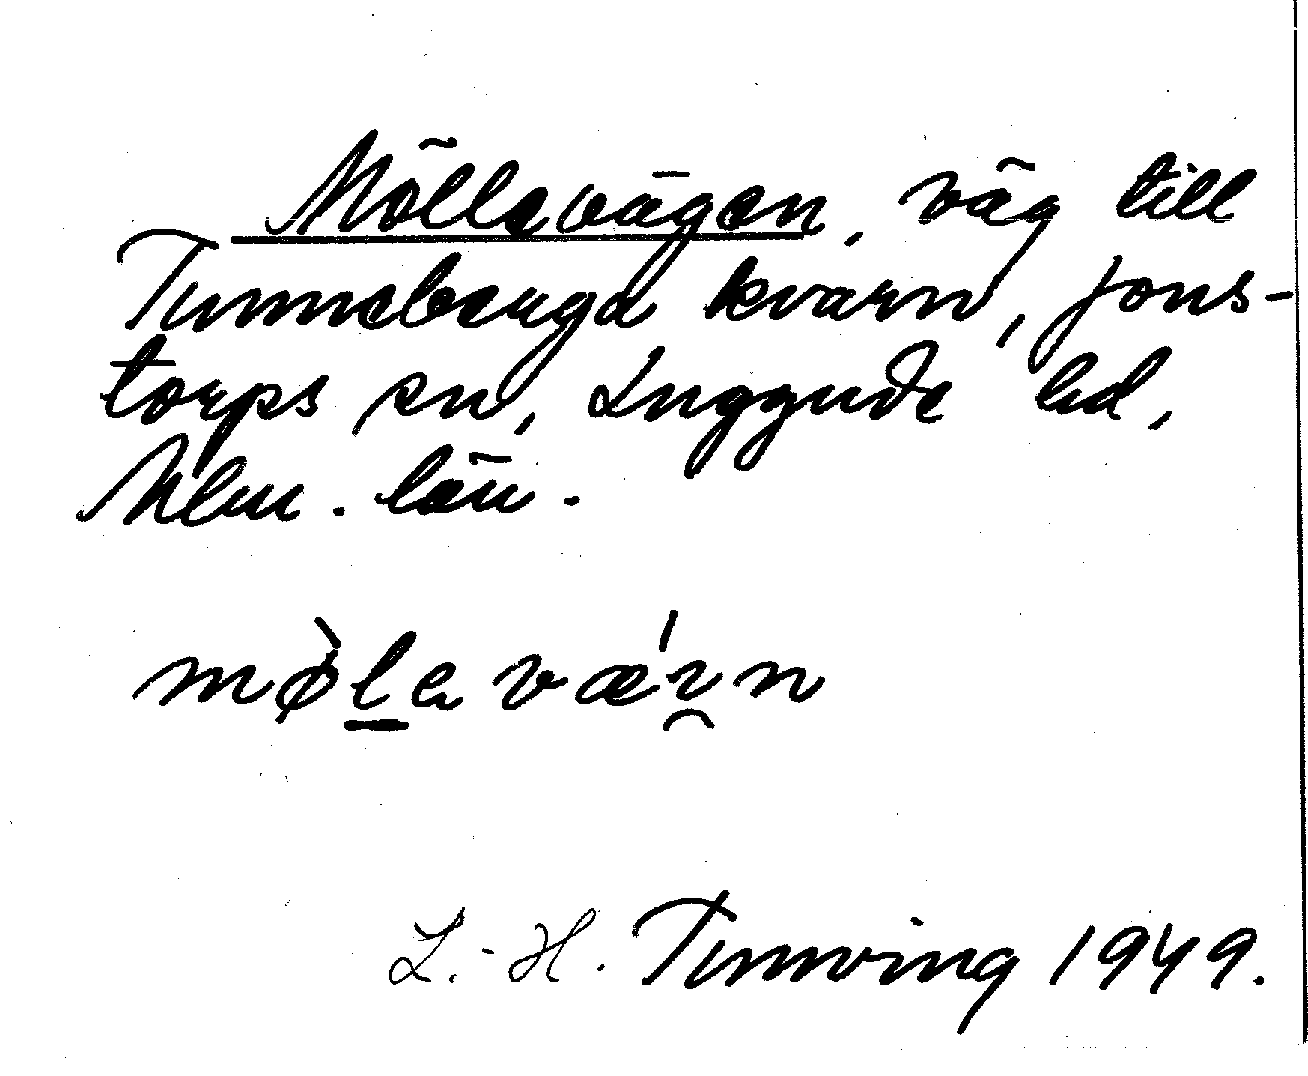 Möllevägen, väg till
Tunneberga kvarn, Jons-
torps sn, Luggude hd,
Mlm. län.
mø̀lava̯n
L.-H. Tunving 1949.